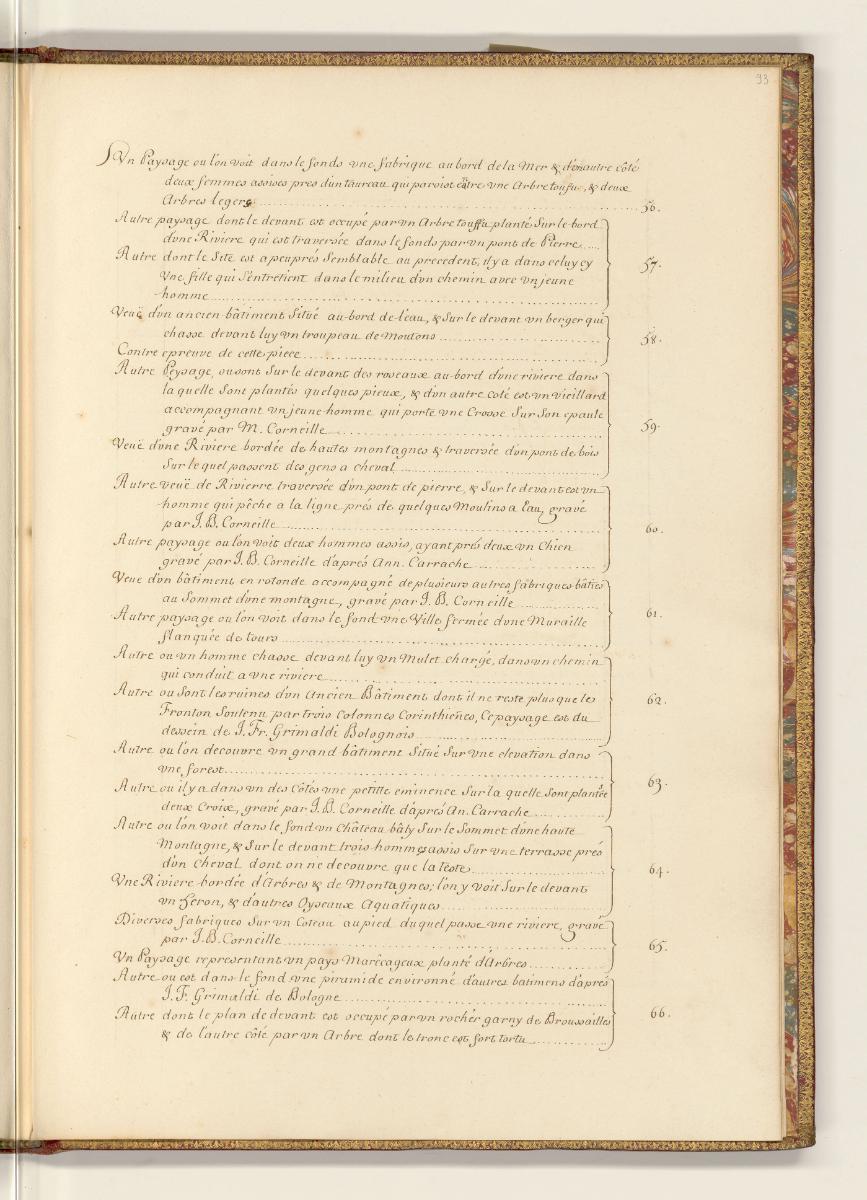 93
Vn Paysage ou l'on voit dans le fonds vne fabrique au bord de la Mer & d'vn autre côté
deux femmes assises pres d'un taureau qui paroist entre vne Arbre toufu, & deux
Arbres legers 56.
Autre paysage dont le devant est occupé par vn Arbre touffu planté Sur le bord
d'vne Riviere qui est traversée dans le fonds par vn pont de Pierre
Autre dont le Site est apeuprés Semblable au precedent, il y a dans celuy cy 57.
Vne fille qui S'entretient dans le milieu d'vn chemin avec vn jeune
homme
Veuë d'vn ancien bâtiment Situé au bord de l'eau, & Sur le devant vn berger qui
chasse devant luy vn troupeau de Moutons 58.
Contre epreuve de cette piece
Autre Peysage, ou sont Sur le devant des roseaux au bord d'vne riviere dans
la quelle Sont plantés quelques pieux, & d'vn autre coté est vn vieillard
accompagnant vn jeune homme qui porte vne Crosse Sur Son epaule
gravé par M. Corneille 59.
Veuë d'vne Riviere bordée de hautes montagnes & traversée d'vn pont de bois
Sur le quel passent des gens a cheval
Autre veuë de Rivierre traversée d'vn pont de pierre, & Sur le devant est vn
homme qui pêche a la ligne prés de quelques Moulins a l'au, gravé
par J. B. Corneille 60.
Autre paysage ou l'on voit deux hommes assis, ayant prés deux vn Chien
gravé par J. B. Corneille d'aprés Ann. Carrache
Veue d'vn bâtiment en rotonde accompagné de plusieurs autres fabriques bâties
au Sommet d'vne montagne, gravé par J. B. Corneille 61.
Autre paysage ou l'on voit dans le fond vne Ville fermée d'vne Muraille
flanquée de tours
Autre ou vn homme chasse devant luy vn Mulet chargé, dans vn chemin
qui conduit a vne riviere
Autre ou Sont les ruines d'vn Ancien Bâtiment dont il ne reste plus que le 62.
Fronton Soutenu par trois Colonnes Corinthieñes, Ce paysage est du
dessein de J. Fr. Grimaldi Bolognois
Autre ou l'on decouvre vn grand bâtiment Situé Sur vne elevation dans
vne forest 63.
Autre ou il y a dans vn des Côtés vne petite eminence Sur la quelle Sont plantée
deux Croix, gravé par J. B. Corneille d'aprés An. Carrache
Autre ou l'on voit dans le fond vn Château bâty Sur le Sommet d'vne haute
Montagne, & Sur le devant trois hommes assis Sur vne terrasse prés
d'vn Cheval dont on ne decouvre que la teste 64.
Vne Riviere bordée d'Arbres & de Montagnes; l'on y voit Sur le devant
vn Heron, & d'autres Oyseaux Aquatiques
Diverses fabriques Sur vn Coteau au pied du quel passe vne riviere, gravé
par J. B. Corneille 65.
Vn Paysage representant vn pays Marêcageux planté d'Arbres
Autre ou est dans le fond vne piramide environné d'autres batimens d'aprés
J. F. Grimaldi de Bologne
Autre dont le plan de devant est occupé par vn rochér garny de Broussailles 66.
& de l'autre côté par vn Arbre dont le tronc est fort tortu